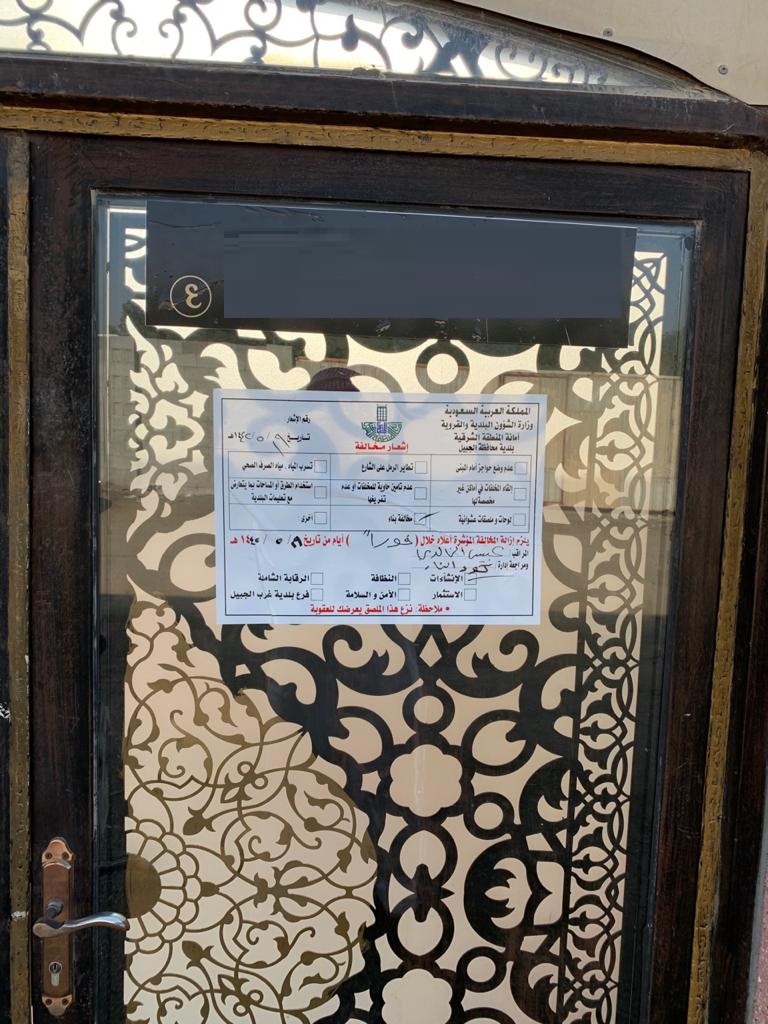 ٤
المملكة العربية السعودية
وزارة الشؤون البلدية والقروية
أمانة المنطقة الشرقية
بلدية محافظة الجبيل
رقم الإشعار
تاريخ ١٤٤٠/٥/٩هـ
إشعار مخالفة
عدم وضع حواجز أمام المبنى
تطاير الرمل على الشارع
تسرب المياه . مياه الصرف الصحي
القاء المخلفات في أماكن غير مخصصة لها
عدم تأمين حاوية للمخلفات أو عدم تفريغها
استخدام الطرق أو الساحات بما يتعارض مع تعليمات البلدية
لوحات و ملصقات عشوائية
مخالفة بناء
أخرى
يلزم إزالة المخالفة المؤشرة أعلاه خلال ( فوراً ) أيام من تاريخ ١٤٤٠/٥/٩ هـ
المراقب:
ومراجعة إدارة:
الإنشاءات
النظافة
الرقابة الشاملة
الاستثمار
الأمن و السلامة
فرع بلدية غرب الجبيل
• ملاحظة: نزع هذا الملصق يعرضك للعقوبة